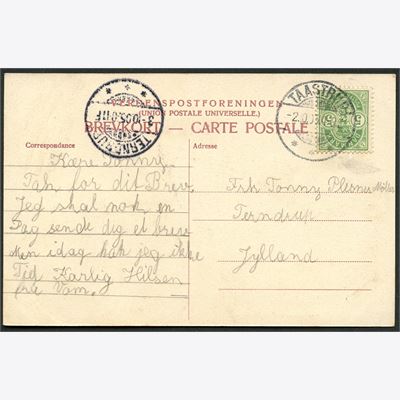 VERDENSPOSTFORENINGEN
(UNION POSTALE UNIVERSELLE.)
BREVKORT — CARTE POSTALE
TAASTRUP
Correspondance
Adresse
Kære Tonny
Tak for dit Brev
Jeg skal nok en
Dag sende dig et brev
Men idag hak jeg ikke
Tid Kærlig Hilsen
fra
Frk Tonny Plesner
Terndrup
Jylland